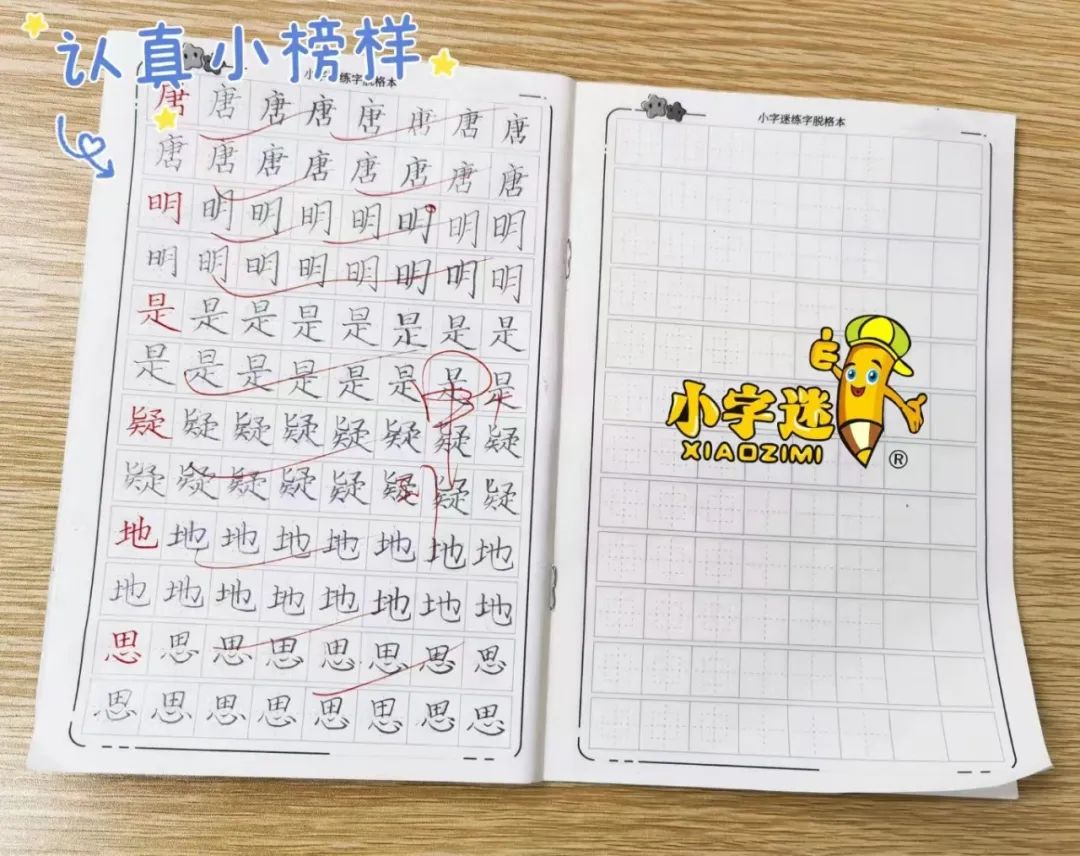 认真小榜样
小字迷练字脱格本
唐唐唐唐唐唐唐唐
唐唐唐唐唐唐唐唐
明明明明明明明明
明明明明明明明明
是是是是是是是是
是是是是是是是是
疑疑疑疑疑疑疑疑
疑疑疑疑疑疑疑疑
地地地地地地地地
地地地地地地地地
思思思思思思思思
思思思思思思思思
小字迷练字脱格本
小字迷
XIAOZIMI
®